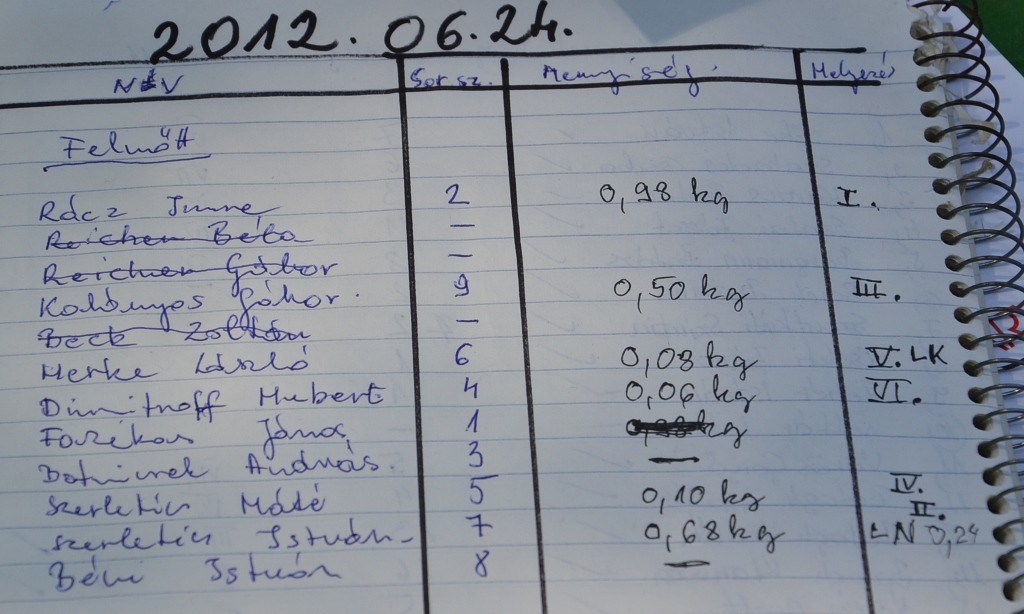 2012. 06.24.
NÉV Sorsz. Mennyiség. Helyezés
Felnőtt
Rácz Imre 2 0,98 kg I.
Reicher Béla —
Reicher Gábor —
Gábor. 9 0,50 kg III.
Beck Zoltán —
Herke László 6 0,08 kg V. LK
Dimitroff Hubert 4 0,06 kg VI.
Fazekas János 1 kg
András. 3 —
Szerletics Máté 5 0,10 kg IV.
Szerletics István 7 0,68 kg II.
LN 0,24
Béni István 8 —